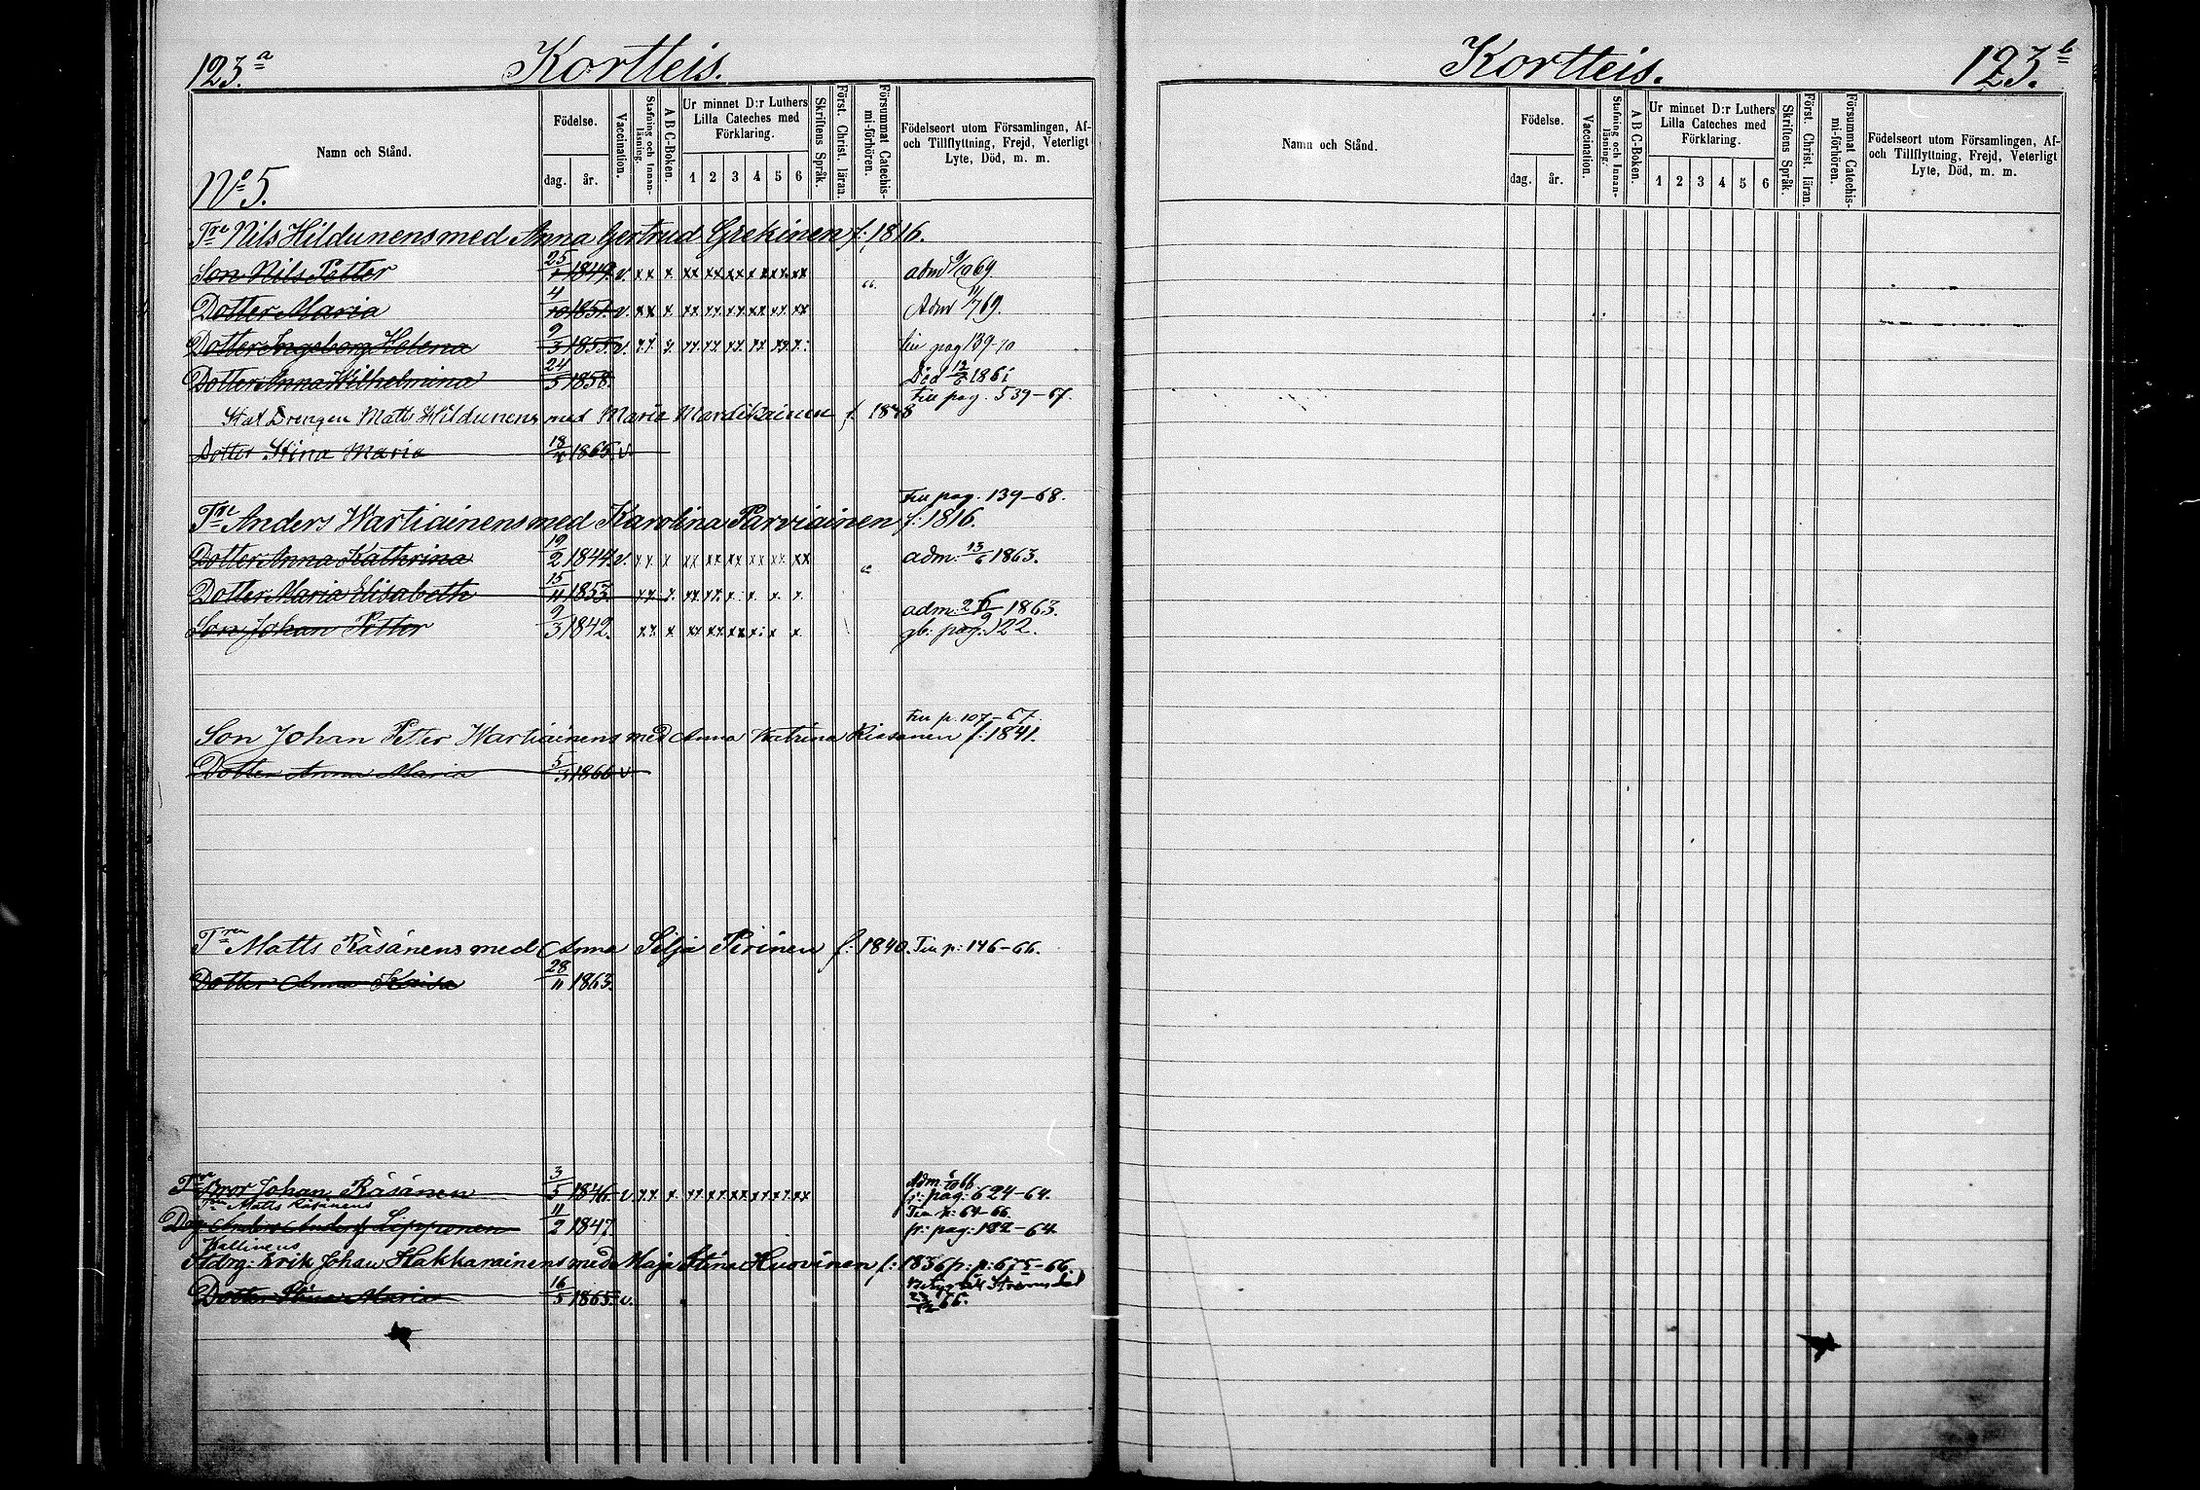 123.a Kortteis.
Namn och Stånd. Födelse. dag. år. Vaccination. Stafning och Innanläsning. A B C-Boken. Ur minnet D:r Luthers Lilla Cateches med Förklaring. 1 2 3 4 5 6 Skriftens Språk. Först. Christ. läran. Försummat Catechismi-förhören. Födelseort utom Församlingen, Af- och Tillflyttning, Frejd, Veterligt Lyte, Död, m. m.
No 5.
Tre Nils Hildunens med Anna Gertrud f: 1816.
Son Nils Petter 25 1849. v. xx x xx xx xx x xx xx adm 9/10 69
66.
Dotter Maria 4/10 1851. v. xx x xx xx xx xx xx xx Adm 11/7 69.
Dotter Ingeborg Helena 9/3 1855. v. pag 139-70
Dotter Anna Wilhelmina 24/5 1858. Död 1861
Till pag. 539-67.
Drengen Matts Hildunens med Maria f. 1848
Dotter Stina Maria 18 1865 v.
Till pag. 139-68.
Tre Anders Wartiainens med Karolina Parviainen f: 1816.
Dotter Anna Kathrina 19/2 1844. v. xx x xx xx xx xx xx xx adm: 13/6 1863.
Dotter Maria Elisabeth 15/11 1853. xx x. xx xx. x. x. x x.
Son Johan Petter 9/3 1842. xx x xx xx xx x: x x. adm: 1863.
pag: 122.
Till p. 107-67.
Son Johan Petter Wartiainens med Anna Katrina f: 1841.
Dotter Anna Maria 5/3 1866 v
Tre Matts Räsänens med Anna Silja Pirinen f: 1840. Till p: 146-66.
Dotter Anna Kaisa 28/11 1863.
Tre Bror Johan Räsänen 3/5 1846. v. xx x. xx xx xx xx xx xx Adm. pag: 624-64.
Tre Matts Räsänens 64-66
Anders Lipponen 11/2 1847. fr: pag: 182-64.
Kallinens
Stdrg: Erik Johan Hakkarainens med Maja Stina Huovinen f: 1836 fr: p: 675-66.
Dotter Stina Maria 16/5 1865. v. Strömsdal
66.
Kortteis. 123.b
Namn och Stånd. Födelse. dag. år. Vaccination. Stafning och Innanläsning. A B C-Boken. Ur minnet D:r Luthers Lilla Cateches med Förklaring. 1 2 3 4 5 6 Skriftens Språk. Först. Christ. läran. Försummat Catechismi-förhören. Födelseort utom Församlingen, Af- och Tillflyttning, Frejd, Veterligt Lyte, Död, m. m.